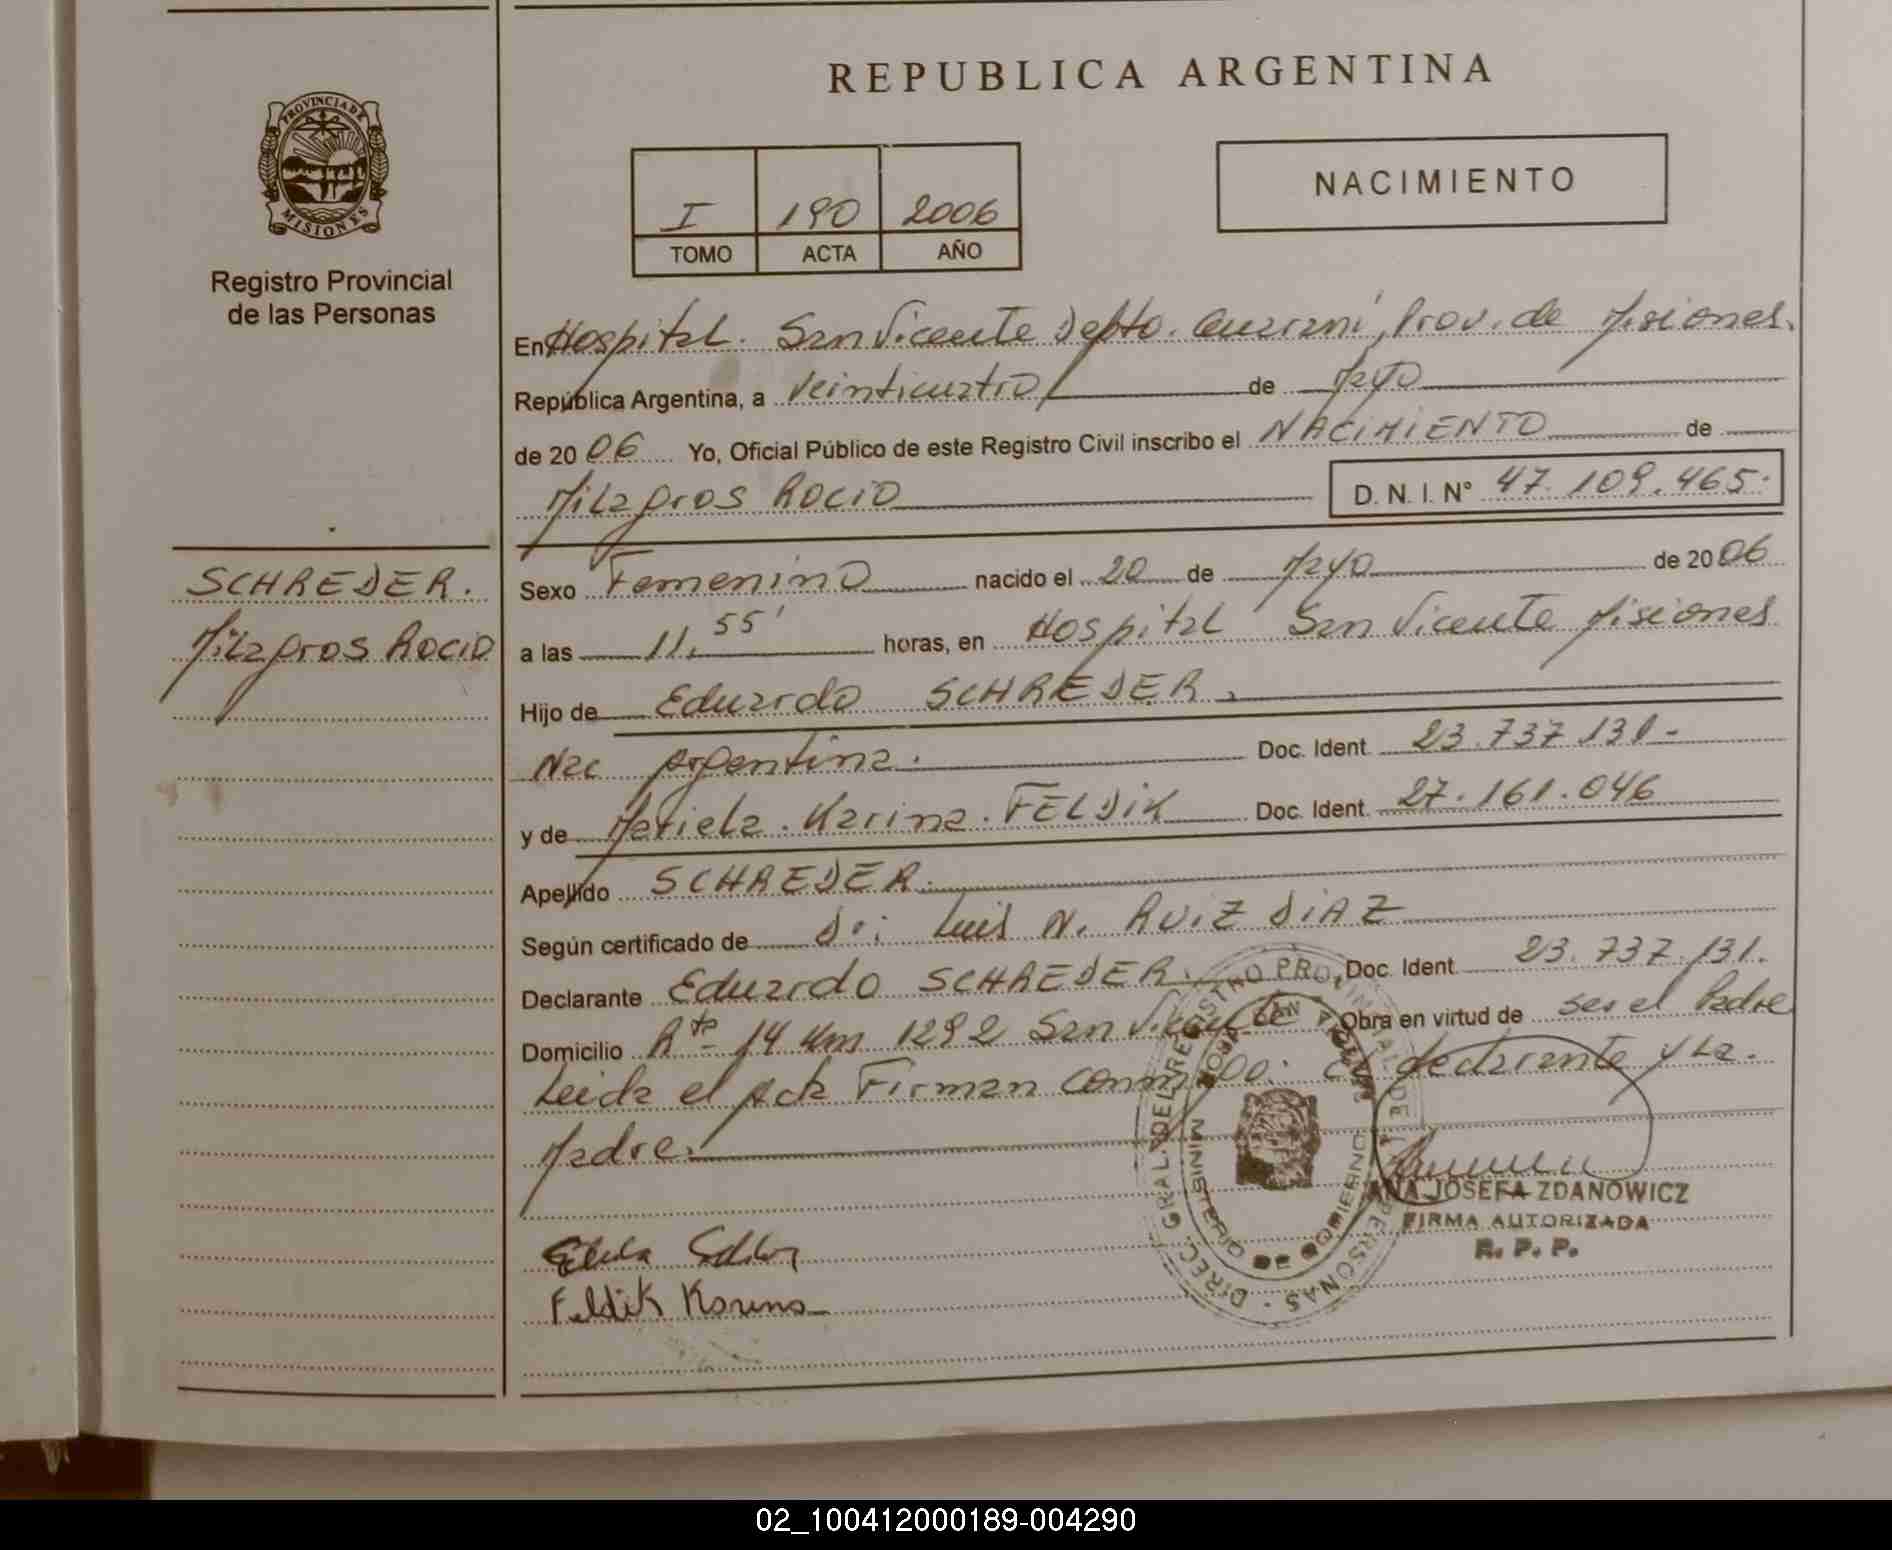 REPUBLICA ARGENTINA
PROVINCIA DE
MISIONES
Registro Provincial
de las Personas
I 190 2006
TOMO ACTA AÑO
NACIMIENTO
En Hospital. San Vicente Depto. Guaraní, Prov. de Misiones.
República Argentina, a Veinticuatro de Mayo
de 2006 Yo, Oficial Público de este Registro Civil inscribo el NACIMIENTO de
Milagros Rocio D. N. I. N° 47.109.465.
SCHREDER.
Milagros Rocio
Sexo Femenino nacido el 20 de Mayo de 2006
a las 11,55' horas, en Hospital San Vicente Misiones
Hijo de Eduardo SCHREDER.
Nac Argentina. Doc. Ident. 23.737.131-
y de Mariela. Karina. FELDIK Doc. Ident. 27.161.046
Apellido SCHREDER.
Según certificado de Dr: Luis N. RUIZ DIAZ
Declarante Eduardo SCHREDER. Doc. Ident. 23.737.131.
Domicilio Rta 14 Km 1292 San Vicente Obra en virtud de ser el Padre
Leida el Acta Firman conmigo: el declarante y La.
Madre.
DIREC. GRAL. DEL REGISTRO PROVINCIAL DE PERSONAS
MINISTERIO DE GOBIERNO
ANA JOSEFA ZDANOWICZ
FIRMA AUTORIZADA
R. P. P.
Feldik Karina
02_100412000189-004290